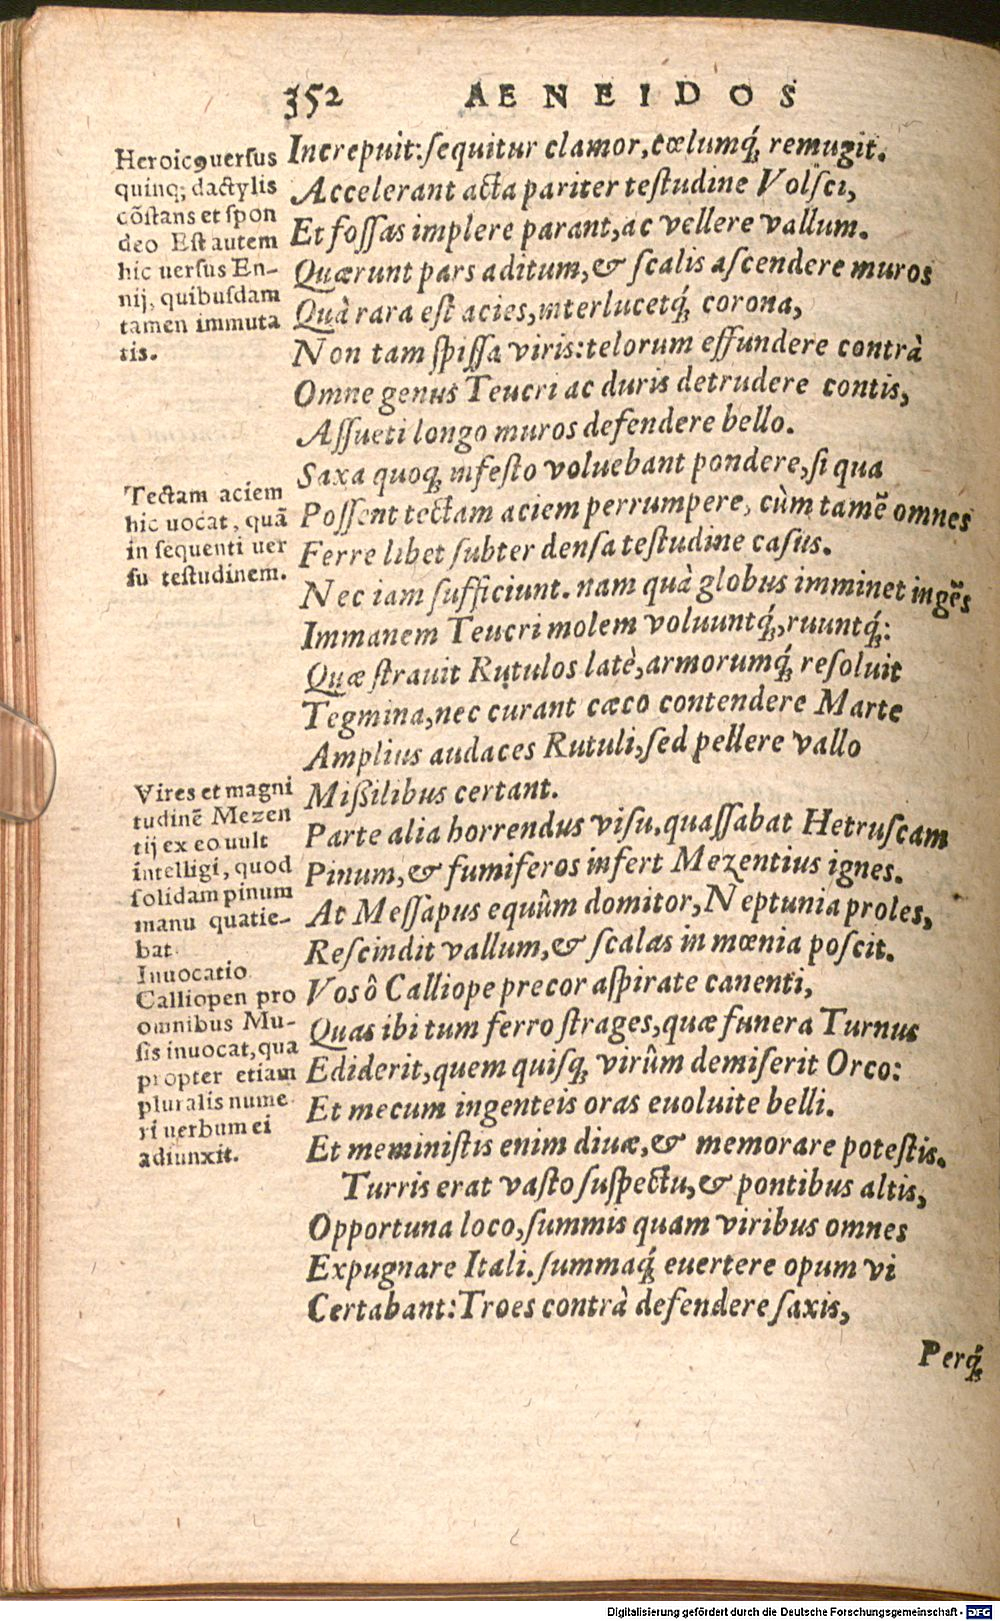 352 AENEIDOS
Heroicꝰ uersus
quinq; dactylis
cõstans et spon
deo Est autem
hic uersus En-
nij, quibusdam
tamen immuta
tis.
Increpuit: sequitur clamor, cœlumq́; remugit.
Accelerant acta pariter testudine Volsci,
Et fossas implere parant, ac vellere vallum.
Quærunt pars aditum, & scalis ascendere muros
Quà rara est acies, interlucetq́; corona,
Non tam spissa viris: telorum effundere contrà
Omne genus Teucri ac duris detrudere contis,
Assueti longo muros defendere bello.
Saxa quoq; infesto voluebant pondere, si qua
Tectam aciem
hic uocat, quã
in sequenti uer
su testudinem.
Possent tectam aciem perrumpere, cùm tamẽ omnes
Ferre libet subter densa testudine casus.
Nec iam sufficiunt. nam quà globus imminet ingẽs
Immanem Teucri molem voluuntq́;, ruuntq́;:
Quæ strauit Rutulos latè, armorumq́; resoluit
Tegmina, nec curant cæco contendere Marte
Amplius audaces Rutuli, sed pellere vallo
Missilibus certant.
Vires et magni
tudinẽ Mezen
tij ex eo uult
intelligi, quod
solidam pinum
manu quatie-
bat.
Parte alia horrendus visu, quassabat Hetruscam
Pinum, & fumiferos infert Mezentius ignes.
At Messapus equûm domitor, Neptunia proles,
Rescindit vallum, & scalas in mœnia poscit.
Inuocatio
Calliopen pro
omnibus Mu-
sis inuocat, qua
propter etiam
pluralis nume
ri uerbum ei
adiunxit.
Vos ô Calliope precor aspirate canenti,
Quas ibi tum ferro strages, quæ funera Turnus
Ediderit, quem quisq; virûm demiserit Orco:
Et mecum ingenteis oras euoluite belli.
Et meministis enim diuæ, & memorare potestis.
Turris erat vasto suspectu, & pontibus altis,
Opportuna loco, summis quam viribus omnes
Expugnare Itali. summaq́; euertere opum vi
Certabant: Troes contrà defendere saxis,
Perq́;
Digitalisierung gefördert durch die Deutsche Forschungsgemeinschaft - DFG